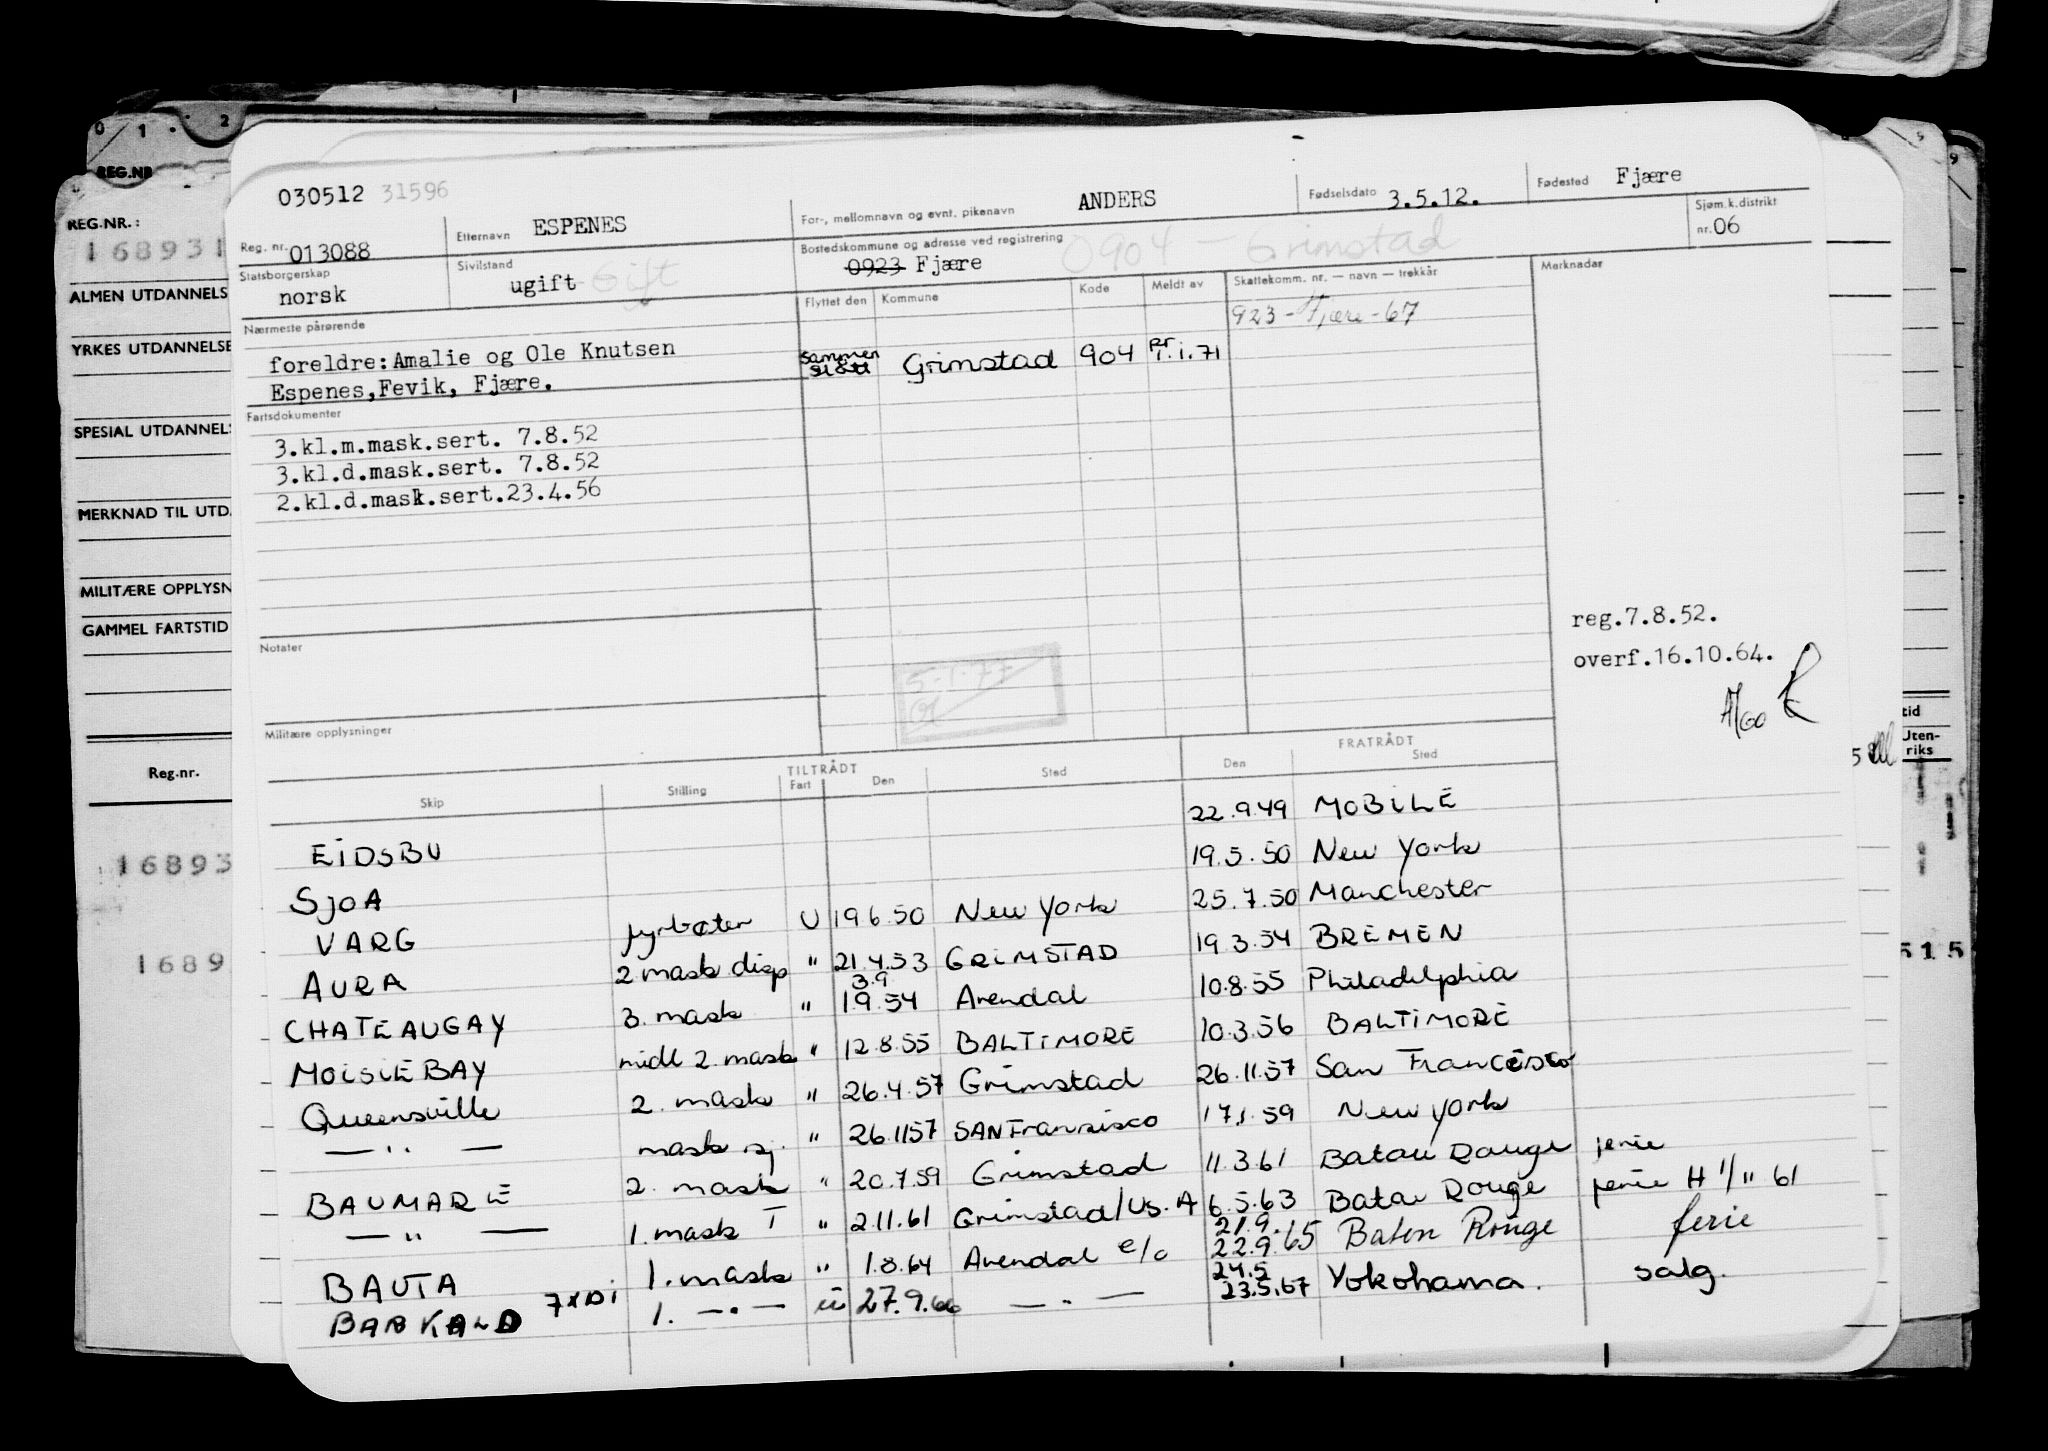 0 1 2
REG.NR
REG.NR.:
168931
ALMEN UTDANNELS
YRKES UTDANNELSE
SPESIAL UTDANNELS
MERKNAD TIL UTD.
MILITÆRE OPPLYSN
GAMMEL FARTSTID
Reg.nr.
16893
1689
030512 31596
Reg. nr. 013088
Etternavn ESPENES
For-, mellomnavn og evnt. pikenavn ANDERS
Fødselsdato 3.5.12.
Fødested Fjære
Statsborgerskap norsk
Sivilstand ugift Gift
Bostedskommune og adresse ved registrering 0904 - Grimstad
0923 Fjære
Sjøm.k.distrikt nr. 06
Nærmeste pårørende
foreldre: Amalie og Ole Knutsen
Espenes, Fevik, Fjære.
Flyttet den Kommune Kode Meldt av Skattekomm. nr. — navn — trekkår Merknader
923 - Fjære - 67
Sammen slått Grimstad 904 pr 1.1.71
Fartsdokumenter
3.kl.m.mask.sert. 7.8.52
3.kl.d.mask.sert. 7.8.52
2.kl.d.mask.sert.23.4.56
Notater
5-1-77
reg.7.8.52.
overf.16.10.64.
Militære opplysninger
TILTRÅDT FRATRÅDT
Skip Stilling Fart Den Sted Den Sted
EIDSBU 22.9.49 MOBILE
SJOA 19.5.50 New York
VARG fyrbøter U 19 6.50 New York 25.7.50 Manchester
AURA 2 mask disp " 21.4.53 GRIMSTAD 19.3.54 BREMEN
CHATEAUGAY 3. mask " 3.9 1.9.54 Arendal 10.8.55 Philadelphia
MOISIE BAY midl 2. mask " 12.8.55 BALTIMORE 10.3.56 BALTIMORE
Queensville 2. mask " 26.4.57 Grimstad 26.11.57 San Francisco
— " — mask sj. " 26.11 57 SAN Fransisco 17.1.59 New York
BAUMARE 2. mask " 20.7.59 Grimstad 11.3.61 Batau Rouge ferie
— " — 1. mask T " 2.11.61 Grimstad/US.A 6.5.63 Batau Rouge ferie H 1/11 61
BAUTA 1. mask " 1.8.64 Arendal e/o 21.9. 22.9.65 Baton Rouge ferie
BARKALD 7XDI 1. — " — ü 27.9.66 — " — 24.5 23.5.67 Yokohama. salg.
9
tid
Uten-
riks
5
515